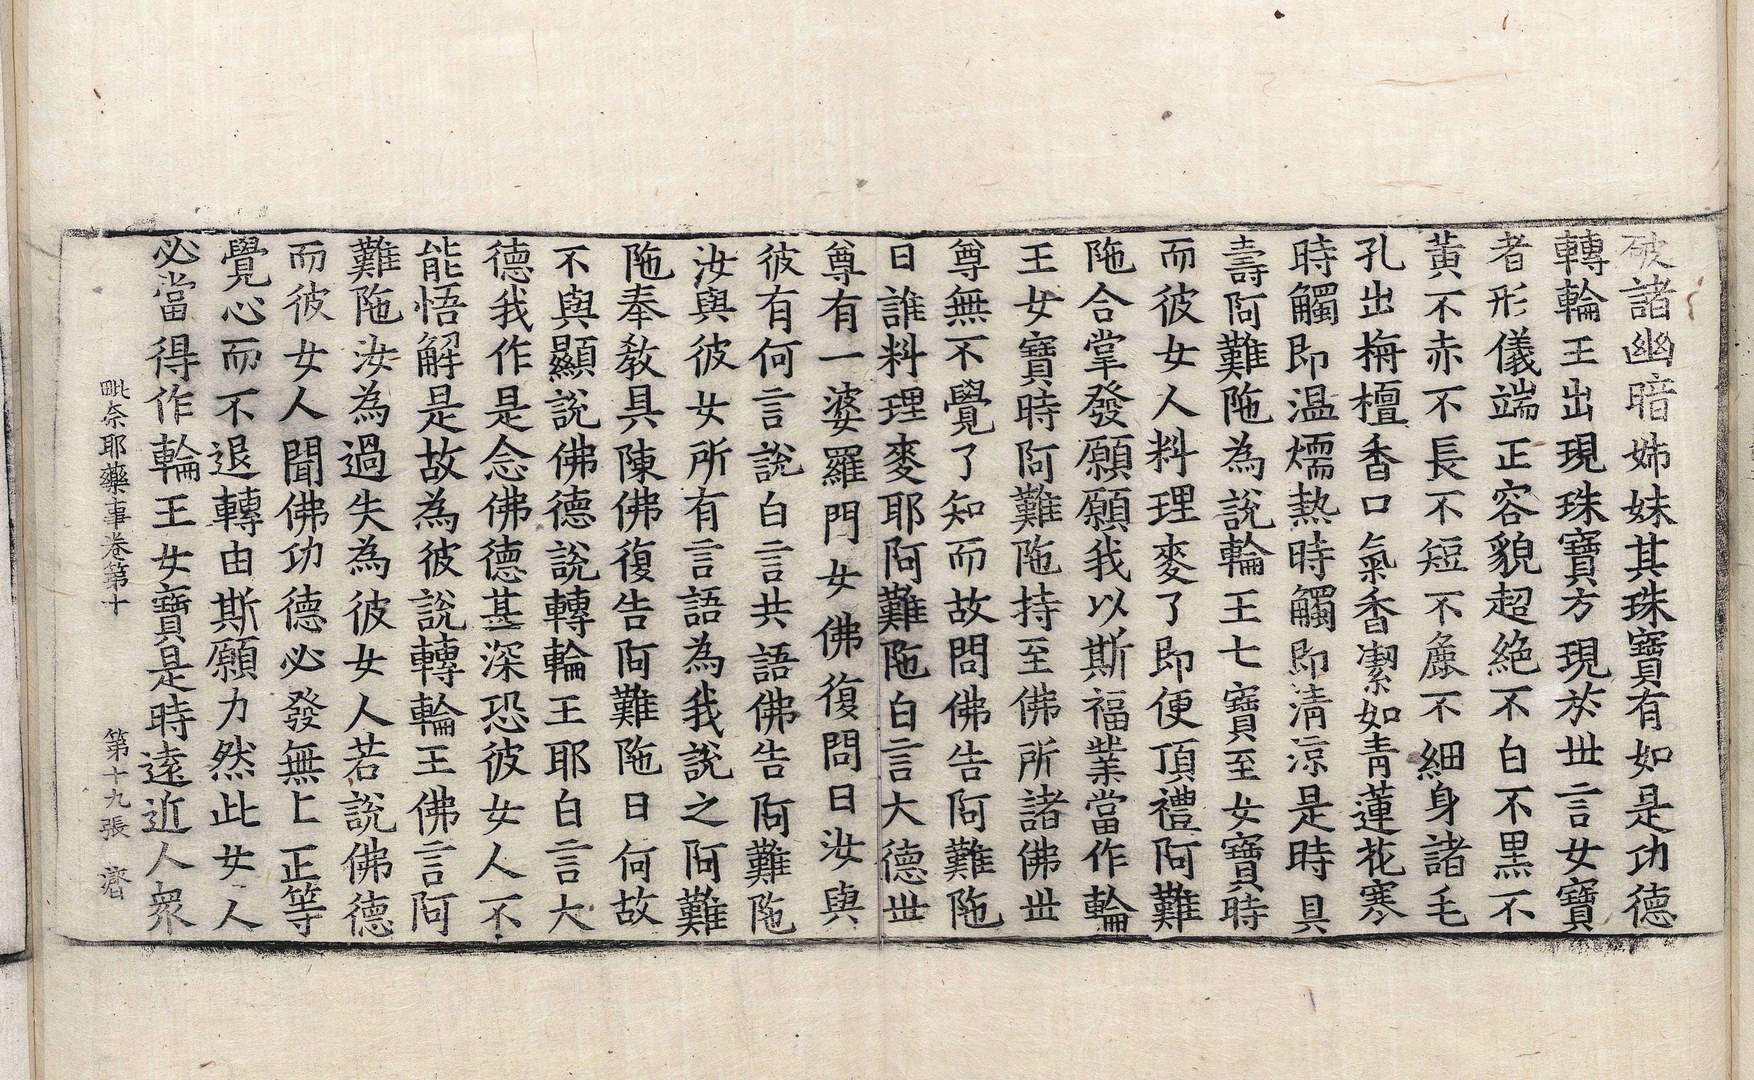 破諸幽暗姊妹其珠寶有如是功德
轉輪王出現珠寶方現於世言女寶
者形儀端正容貌超絶不白不黒不
黃不赤不長不短不麁不細身諸毛
孔出栴檀香口氣香潔如青蓮花寒
時觸即温㬉熱時觸即清凉是時具
壽阿難陁為說輪王七寶至女寶時
而彼女人料理麥了即便頂禮阿難
陁合掌發願願我以斯福業當作輪
王女寶時阿難陁持至佛所諸佛世
尊無不覺了知而故問佛告阿難陁
曰誰料理麥耶阿難陁白言大德世
尊有一婆羅門女佛復問曰汝與
彼有何言說白言共語佛告阿難陁
汝與彼女所有言語為我說之阿難
陁奉教具陳佛復告阿難陁曰何故
不與顯說佛德說轉輪王耶白言大
德我作是念佛德甚深恐彼女人不
能悟解是故為彼說轉輪王佛言阿
難陁汝為過失為彼女人若說佛德
而彼女人聞佛功德必發無上正等
覺心而不退轉由斯願力然此女人
必當得作輪王女寶是時遠近人衆
毗奈耶藥事卷第十　第十九張　濟